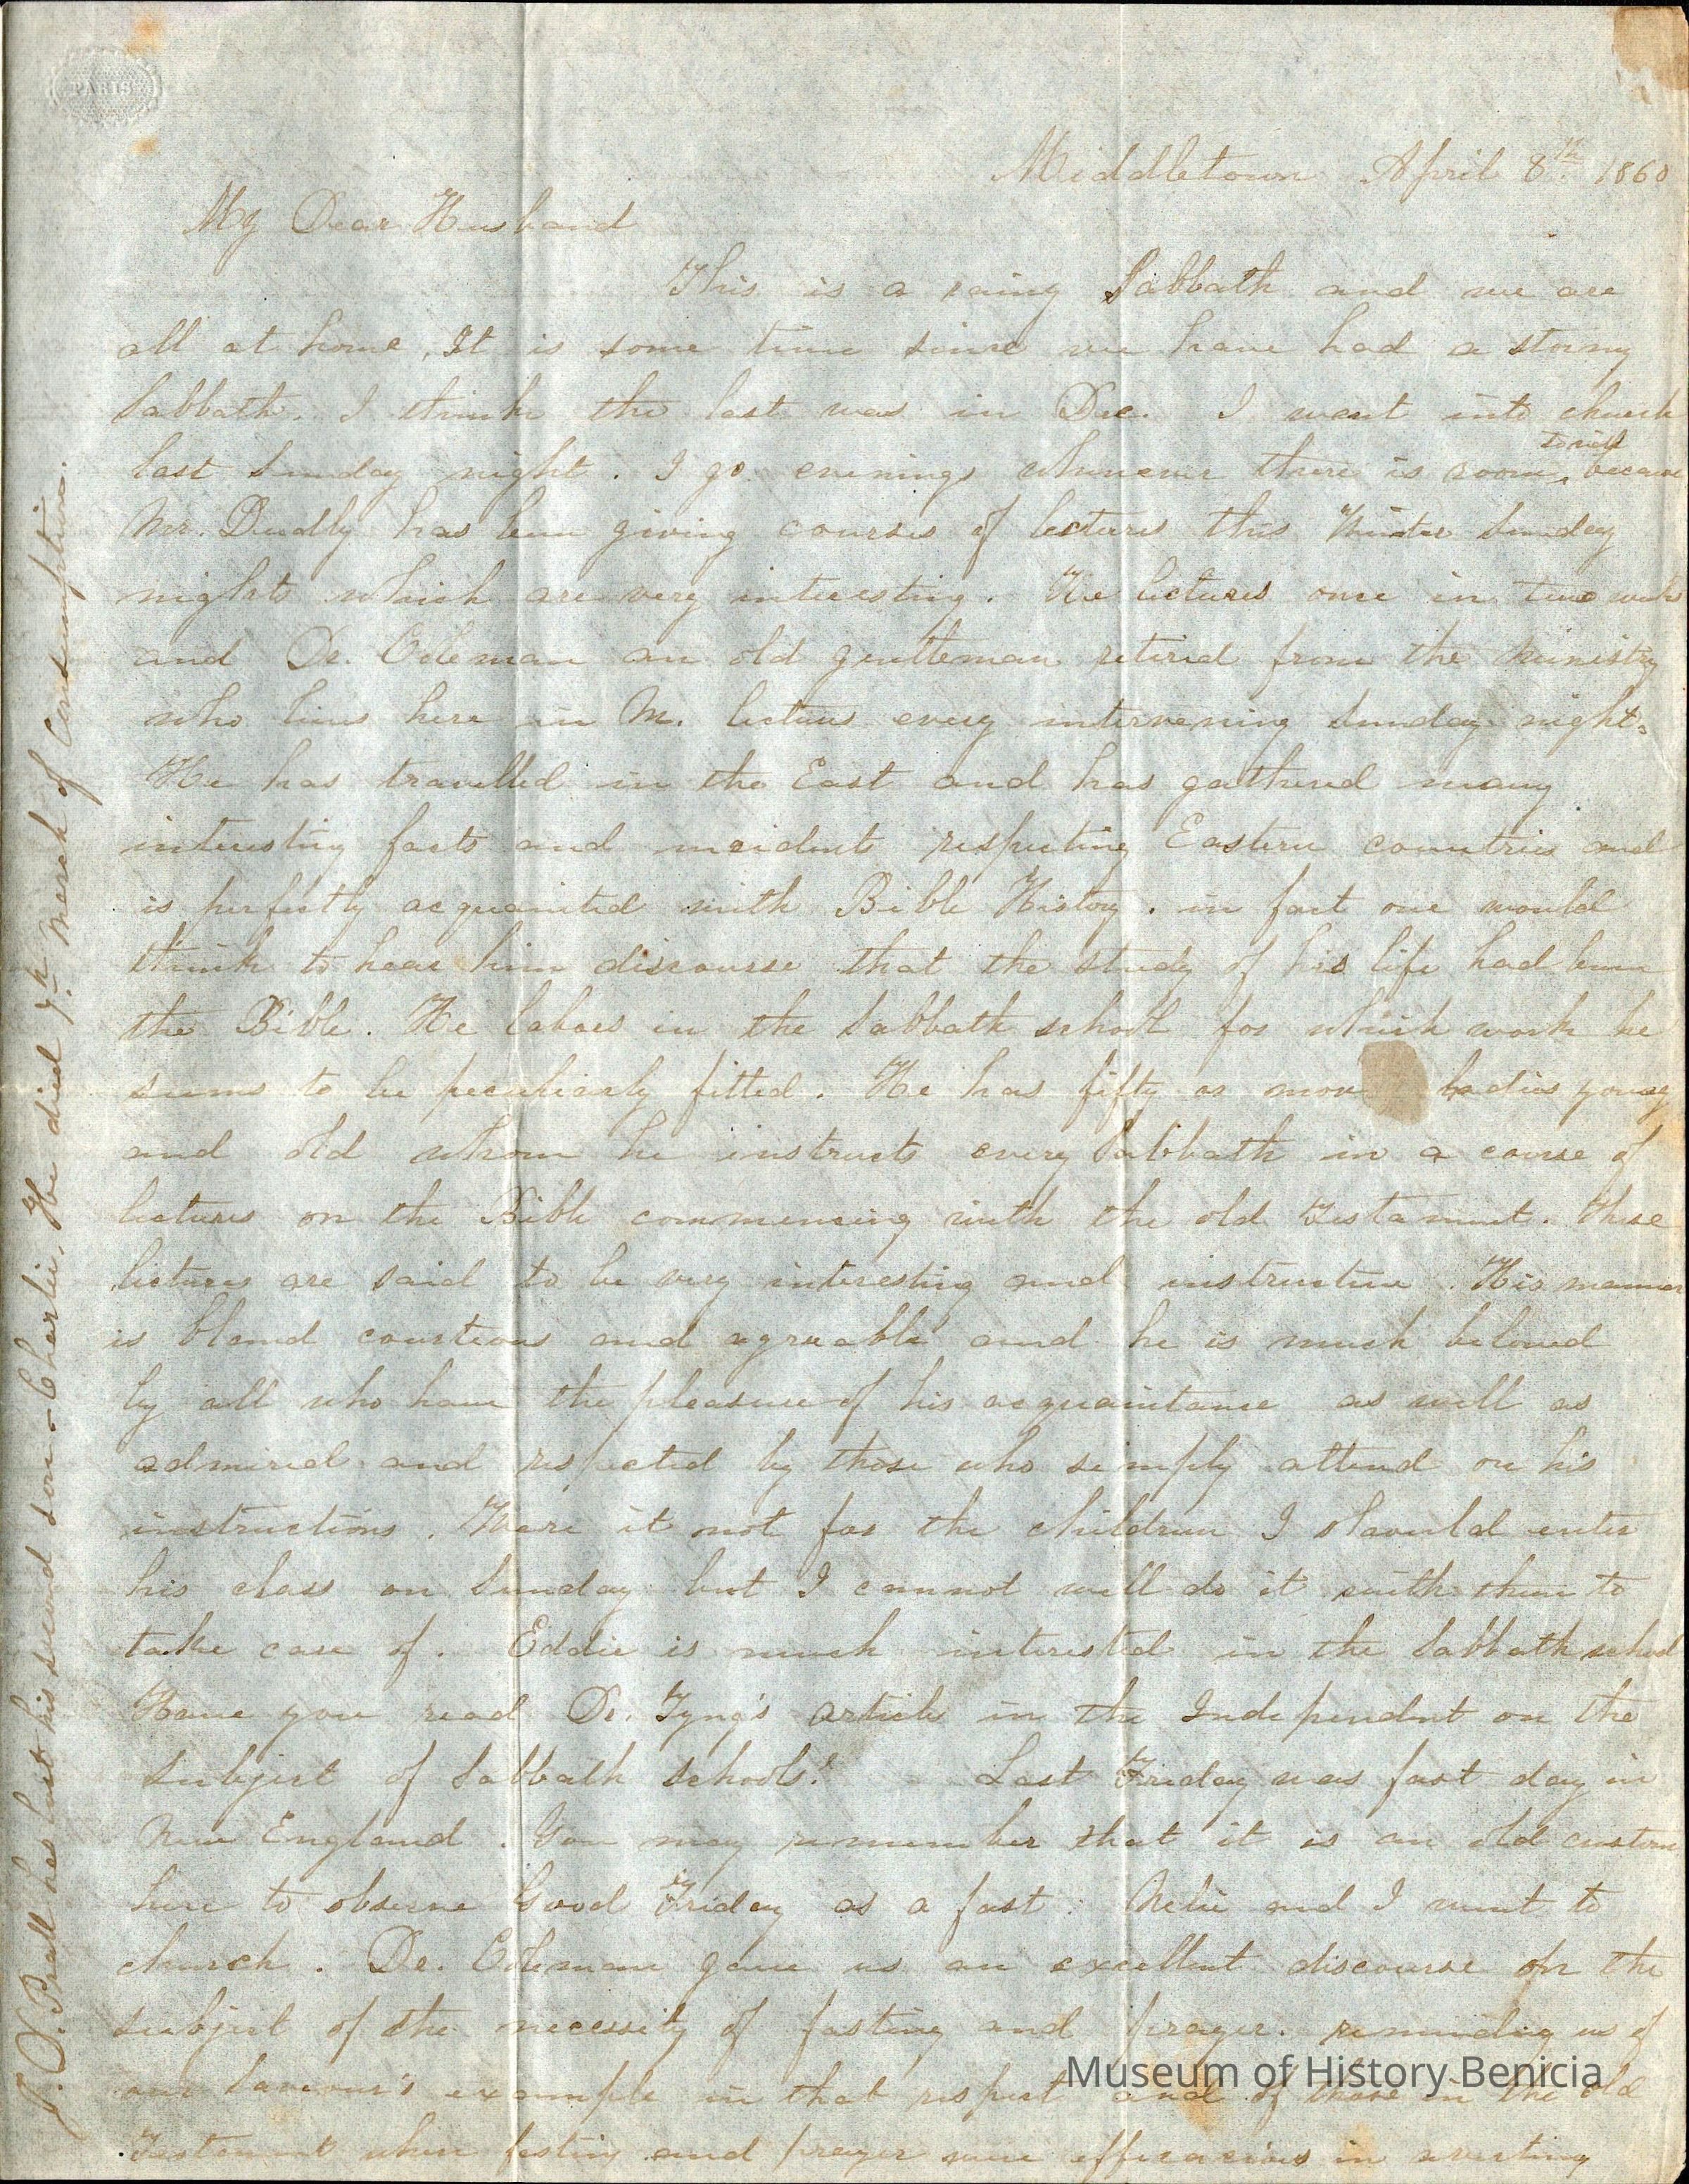 PARIS
Middletown April 8th 1860
My Dear Husband
This is a rainy Sabbath and we are
all at home. It is some time since we have had a stormy
Sabbath. I think the last was in Dec. I went into church
last Sunday night. I go evenings whenever there is room, because
Mr. Dudly has been giving courses of lectures this Winter Sunday
nights which are very interesting. He lectures once in two weeks
and Dr. Coleman an old gentleman retired from the ministry
who lives here in M. lectures every intervening Sunday night.
He has travelled in the East and has gathered many
interesting facts and incidents respecting Eastern countries and
is perfectly acquainted with Bible History. in fact one would
think to hear him discourse that the study of his life had been
the Bible. He labors in the Sabbath school for which work he
seems to be peculiarly fitted. He has fifty or more ladies young
and old whom he instructs every Sabbath in a course of
lectures on the Bible commencing with the old Testament. These
lectures are said to be very interesting and instructive. His manner
is bland courteous and agreeable and he is much beloved
by all who have the pleasure of his acquaintance as well as
admired and respected by those who simply attend on his
instructions. Were it not for the children I should enter
his class on Sunday but I cannot well do it with them to
take care of. Eddie is much interested in the Sabbath school
Have you read Dr. Tyng's article in the Independent on the
subject of Sabbath schools? Last Friday was fast day in
New England. You may remember that it is an old custom
here to observe Good Friday as a fast. Nelie and I went to
church. Dr. Coleman gave us an excellent discourse on the
subject of the necessity of fasting and prayer. reminding us of
our Saviour's example in that respect and of those in the old
Testament when fasting and prayer were efficacious in averting
J. S. Prall has lost his second son - Charlie, He died 7th March of Consumption.
Museum of History Benicia